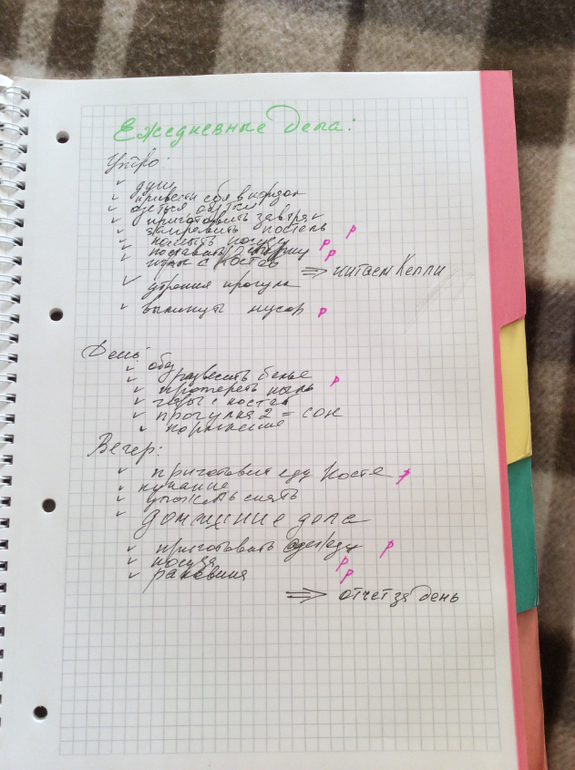 Ежедневные дела:
Утро:
душ
привести себя в порядок
приготовить завтрак
заправить постель р
помыть посуду р
поставить р
с Костей ⇒ читаем Келли
утренняя прогулка
выкинуть мусор р
День:
обед
развесить белье
протереть пыль р
с Костей
прогулка 2 = сон
кормление
Вечер:
приготовить еду Косте р
купание
уложить спать
домашние дела
приготовить одежду р
посуда р
раковина р
⇒ отчет за день